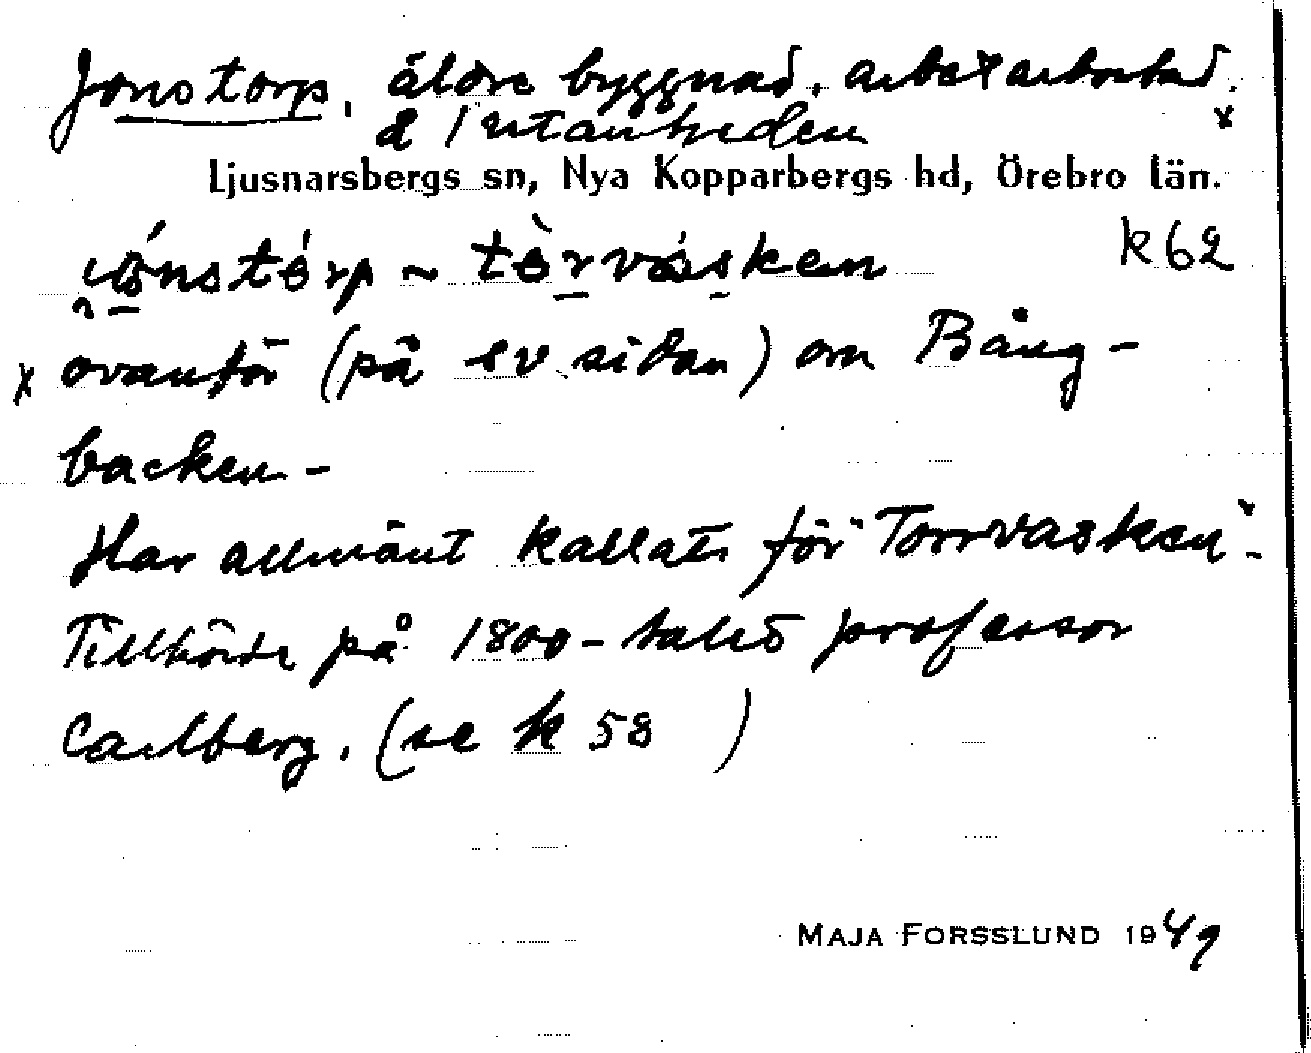 Jonstorp, äldre byggnad, arbetarbostad x
å /Utanheden
Ljusnarsbergs sn, Nya Kopparbergs hd, Örebro län.
jónstórp ~ tòrvásken k62
x ovanför (på sv sidan) om Bång-
backen -
Har allmänt kallats för "Torrvasken".
Tillhörde på 1800-talet professor
Carlberg. (se k 58 )
MAJA FORSSLUND 1949